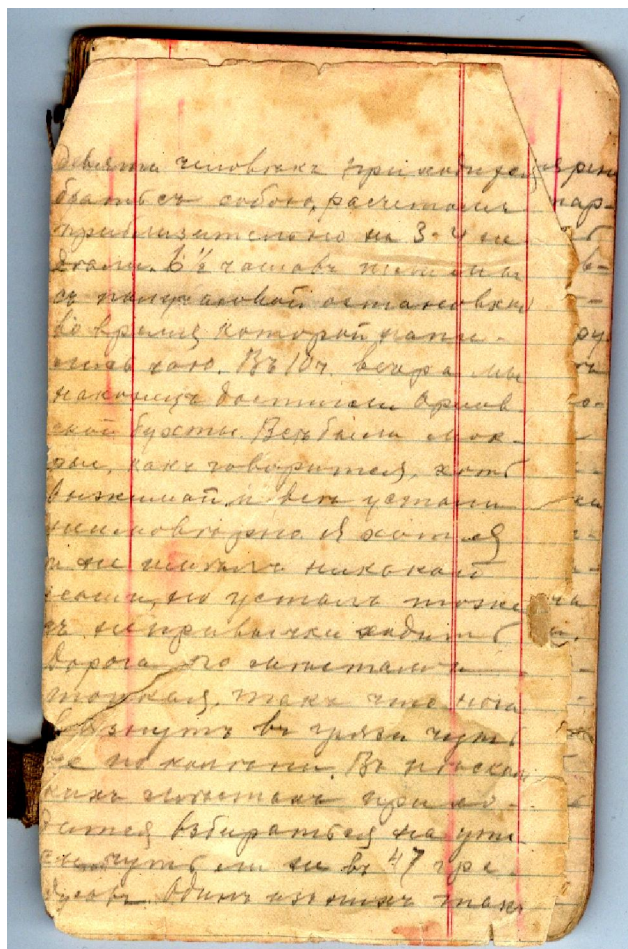 девяти человѣкъ приходится
бытьсъ собою, расчетомъ
приблизительно на 3-4 не
дѣли. 6½ часовъ шли мы
съ получасовой остановкой
во время которой напи-
лись чаю. Въ 10 ч. вечера мы
наконецъ достигли Орлов-
ской бухты. Всѣ были мок-
рые, какъ говорится, хоть
выжимай и всѣ устали
неимовѣрно. Я хотя
и не имѣлъ никакой
ноши, но усталъ тоже
съ непривычки ходить
Дорога по мѣстамъ
топкая, такъ что ноги
вязнутъ въ грязи чуть
не по колѣни. Въ нѣсколь
кихъ мѣстахъ прихо-
дится взбираться на уте
сы чуть ли не въ 47 гра-
дусовъ. Одинъ изъ нихъ такъ